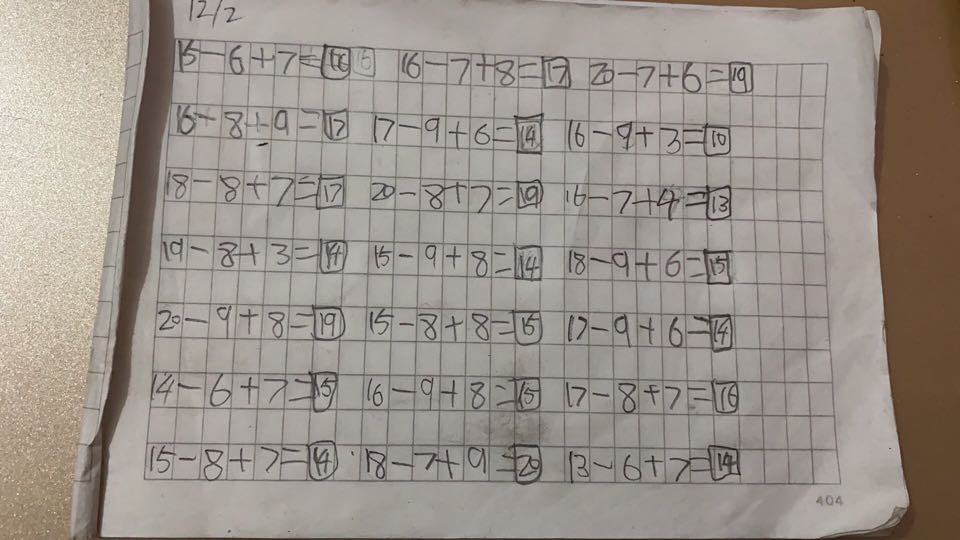 12/2
15-6+7=16 16-7+8=17 20-7+6=19
16-8+9=17 17-9+6=14 16-9+3=10
18-8+7=17 20-8+7=19 16-7+4=13
19-8+3=14 15-9+8=14 18-9+6=15
20-9+8=19 15-8+8=15 17-9+6=14
14-6+7=15 16-9+8=15 17-8+7=16
15-8+7=14 18-7+9=20 13-6+7=14
404